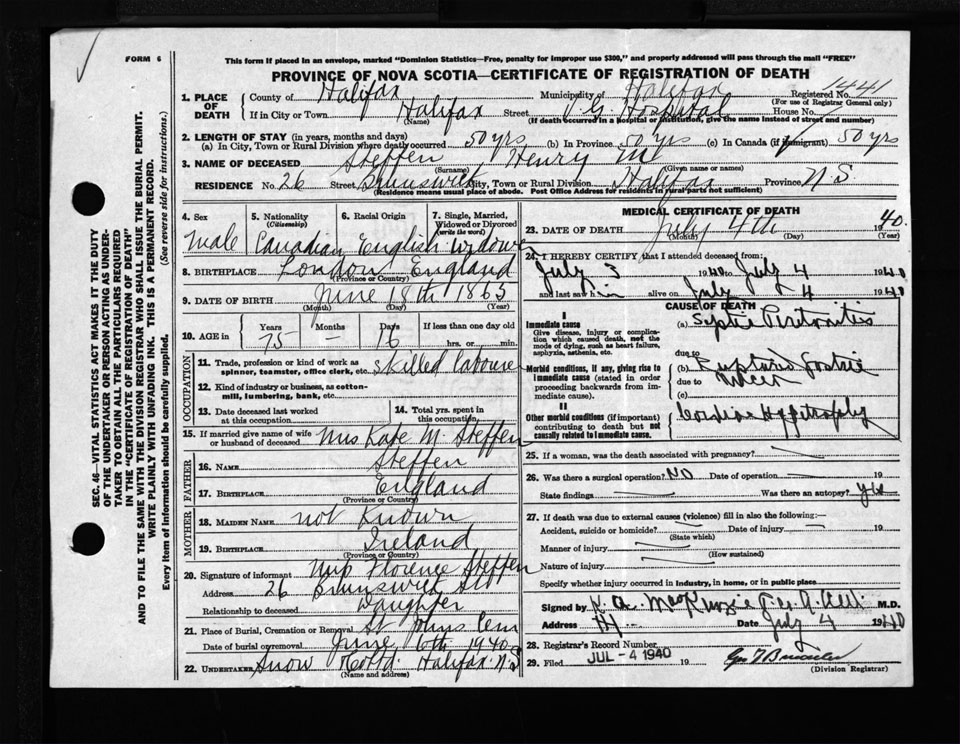 FORM 6
This form if placed in an envelope, marked "Dominion Statistics—Free, penalty for improper use $300," and properly addressed will pass through the mail "FREE"
PROVINCE OF NOVA SCOTIA—CERTIFICATE OF REGISTRATION OF DEATH
1. PLACE OF DEATH
County of Halifax Municipality of Halifax Registered No. 1441
(For use of Registrar General only)
If in City or Town Halifax Street V. G. Hospital House No.
(Name) (If death occurred in a hospital or institution, give the name instead of street and number)
2. LENGTH OF STAY (in years, months and days)
(a) In City, Town or Rural Division where death occurred 50 yrs (b) In Province 50 yrs (c) In Canada (if immigrant) 50 yrs
3. NAME OF DECEASED Steffen Henry M
(Surname) (Given name or names)
RESIDENCE No. 26 Street Brunswick City, Town or Rural Division Halifax Province N.S
(Residence means usual place of abode. Post Office Address for residents in rural parts not sufficient)
4. Sex
Male
5. Nationality
(Citizenship)
Canadian
6. Racial Origin
English
7. Single, Married, Widowed or Divorced
(write the word)
Widower
8. BIRTHPLACE London England
(Province or Country)
9. DATE OF BIRTH June 18th 1865
(Month) (Day) (Year)
10. AGE in
Years Months Days If less than one day old
75 — 16 hrs. or min.
OCCUPATION
11. Trade, profession or kind of work as spinner, teamster, office clerk, etc. Skilled labourer
12. Kind of industry or business, as cotton-mill, lumbering, bank, etc.
13. Date deceased last worked at this occupation
14. Total yrs. spent in this occupation
15. If married give name of wife or husband of deceased Mrs Kate M. Steffen
FATHER
16. NAME Steffen
17. BIRTHPLACE England
(Province or Country)
MOTHER
18. MAIDEN NAME not Known
19. BIRTHPLACE Ireland
(Province or Country)
20. Signature of informant Florence Steffen
Address 26 Brunswick St
Relationship to deceased Daughter
21. Place of Burial, Cremation or Removal St Johns Cem
Date of burial or removal June 6th 1940
22. UNDERTAKER Snow & Co Ltd. Halifax N.S
(Name and address)
MEDICAL CERTIFICATE OF DEATH
23. DATE OF DEATH July 4th 1940
(Month) (Day) (Year)
24. I HEREBY CERTIFY that I attended deceased from:
July 3 1940 to July 4 1940
and last saw him alive on July 4 1940
CAUSE OF DEATH
I
Immediate cause
Give disease, injury or complication which caused death, not the mode of dying, such as heart failure, asphyxia, asthenia, etc.
(a) Septic Peritonitis
due to
Morbid conditions, if any, giving rise to immediate cause (stated in order proceeding backwards from immediate cause).
(b) Ruptured Gastric Ulcer
due to
(c)
II
Other morbid conditions (if important) contributing to death but not causally related to immediate cause.
Cardiac Hypertrophy
25. If a woman, was the death associated with pregnancy?
26. Was there a surgical operation? NO Date of operation 19
State findings Was there an autopsy? yes
27. If death was due to external causes (violence) fill in also the following:—
Accident, suicide or homicide? Date of injury 19
(State which)
Manner of injury
(How sustained)
Nature of injury
Specify whether injury occurred in industry, in home, or in public place
Signed by K. A. MacKenzie M.D.
Address Date July 4 1940
28. Registrar's Record Number
29. Filed JUL - 4 1940 19
(Division Registrar)
SEC. 46—VITAL STATISTICS ACT MAKES IT THE DUTY OF THE UNDERTAKER OR PERSON ACTING AS UNDERTAKER TO OBTAIN ALL THE PARTICULARS REQUIRED IN THE "CERTIFICATE OF REGISTRATION OF DEATH" AND TO FILE THE SAME WITH THE DIVISION REGISTRAR WHO SHALL ISSUE THE BURIAL PERMIT.
WRITE PLAINLY WITH UNFADING INK. THIS IS A PERMANENT RECORD.
Every item of information should be carefully supplied. (See reverse side for instructions.)